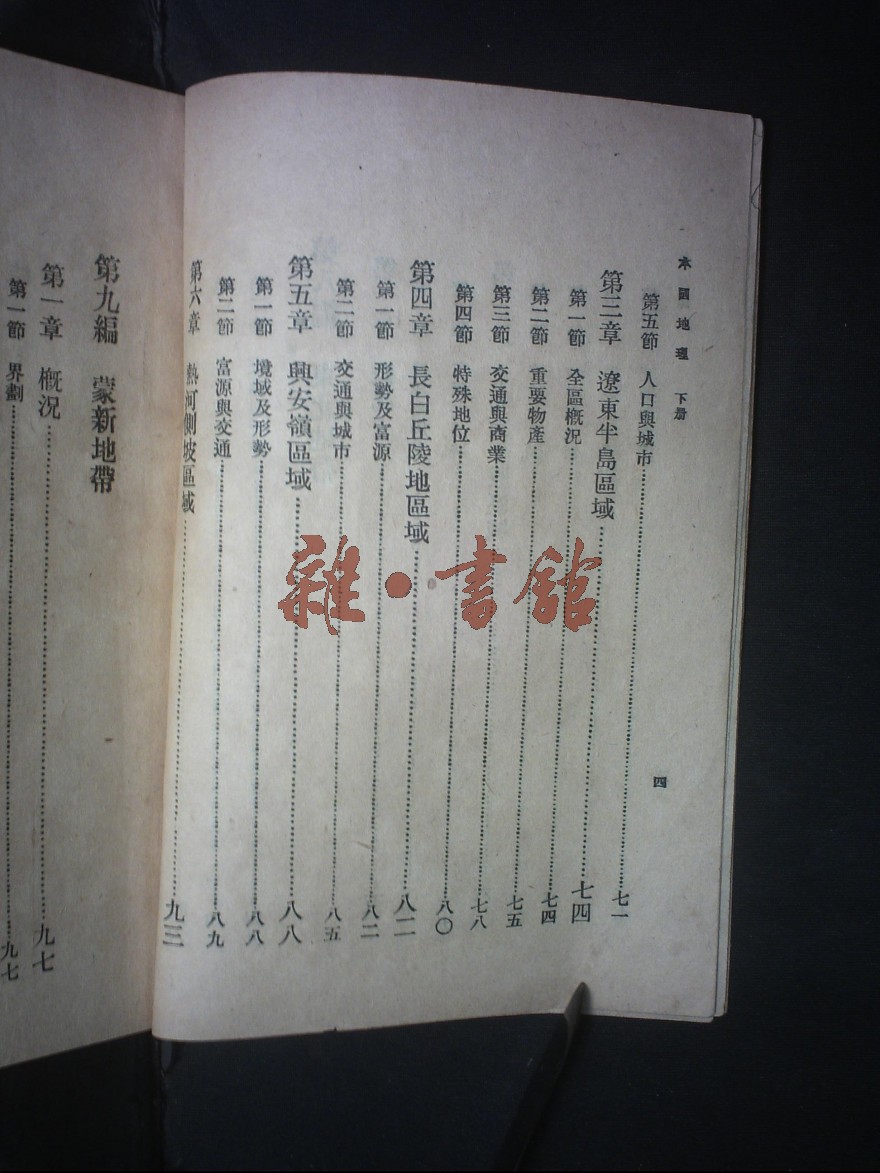 本國地理 下册
四
第五節 人口與城市……七一
第三章 遼東半島區域……七四
第一節 全區概況……七四
第二節 重要物產……七五
第三節 交通與商業……七八
第四節 特殊地位……八〇
第四章 長白丘陵地區域……八二
第一節 形勢及富源……八二
第二節 交通與城市……八五
第五章 興安嶺區域……八八
第一節 境域及形勢……八八
第二節 富源與交通……八九
第六章 熱河側坡區域……九三
第九編 蒙新地帶
第一章 概況……九七
第一節 界劃……九七
雜·書館